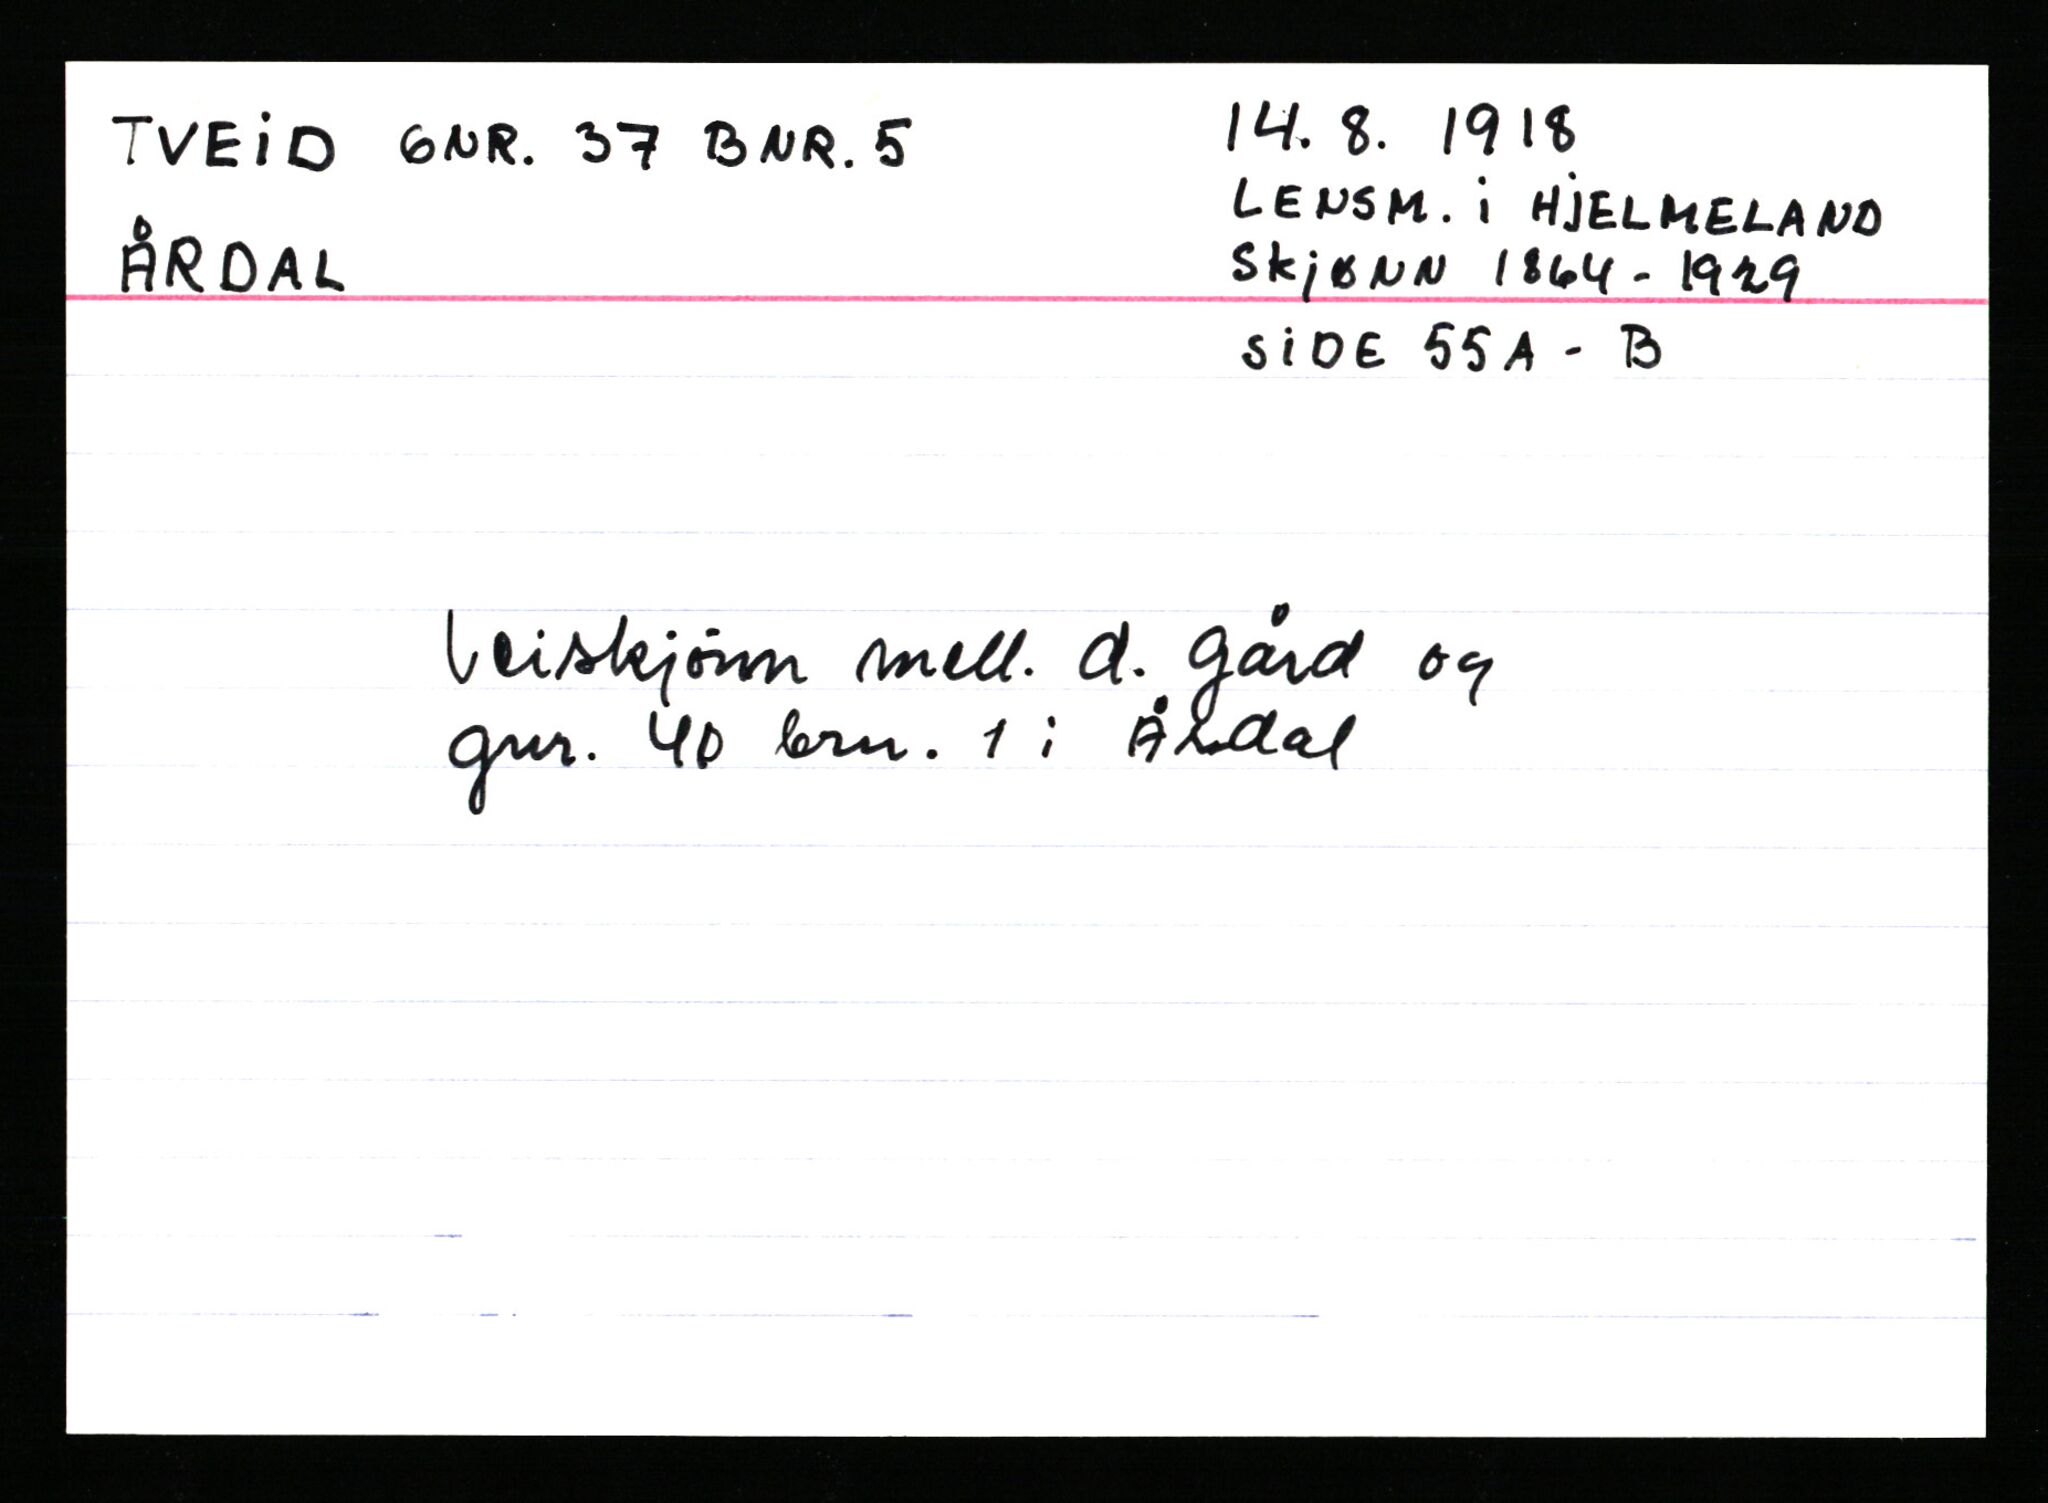 TVEiD GNR. 37 BNR. 5
ÅRDAL
14. 8. 1918
LENSM. i HJELMELAND
SKJØNN 1864 - 1929
SiDE 55A - B
Veiskjönn mell. d. gård og
gnr. 40 brn. 1 i Årdal